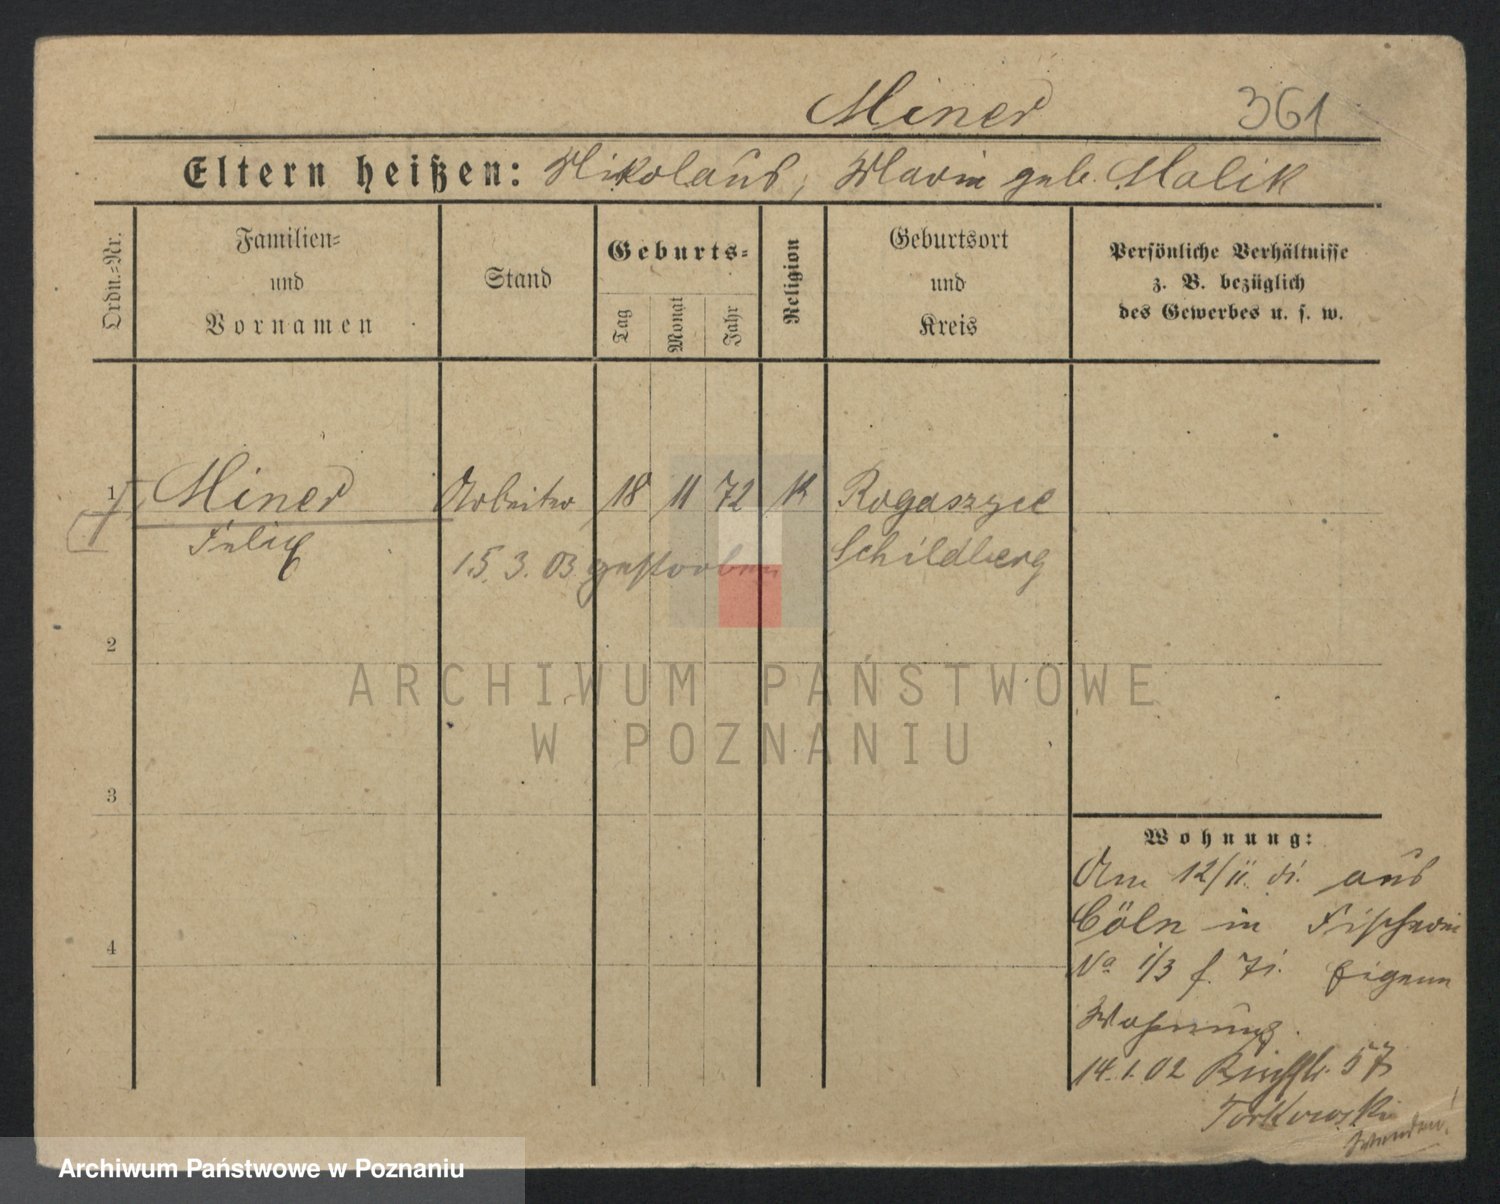 Miner 361
Eltern heißen: Nikolaus, Marie geb. Malik
Ordn.=Nr.
Familien=
und
Vornamen
Stand
Geburts=
Tag
Monat
Jahr
Religion
Geburtsort
und
Kreis
Persönliche Verhältnisse
z. B. bezüglich
des Gewerbes u. s. w.
1 Miner Arbeiter 18 11 72 K Rogaszyce
Felix Schildberg
15. 3. 03 gestorben
2
3
4
Wohnung:
Am 12/11. aus
Cöln in
No 1/3
Wohnung.
14.1.02 57
Torkowski
wenden!
ARCHIWUM PAŃSTWOWE
W POZNANIU
Archiwum Państwowe w Poznaniu